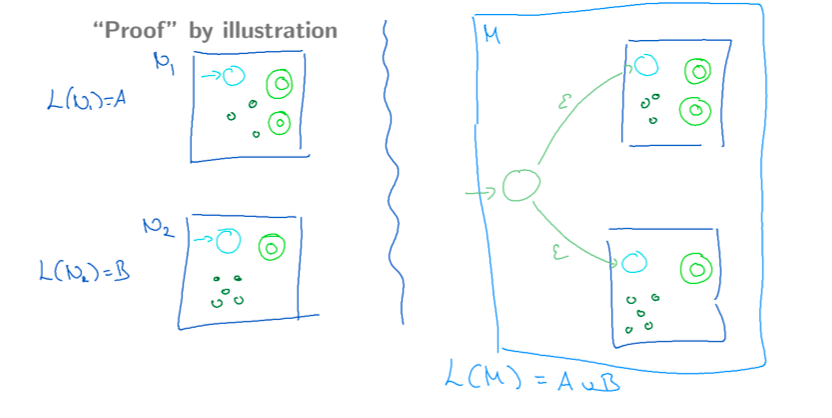 “Proof” by illustration
N₁
L(N₁)=A
N₂
L(N₂)=B
M
ε
ε
L(M) = A∪B